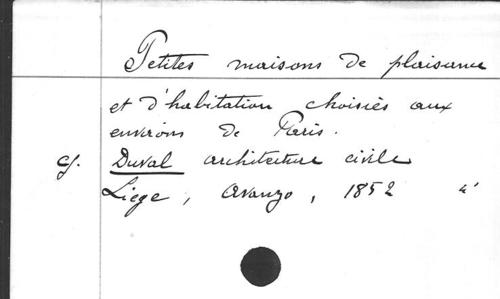 Petites maisons de plaisance
et d'habitation choisies aux
environs de Paris.
cf. Duval architecture civile
Liège, Avanzo, 1852 4°